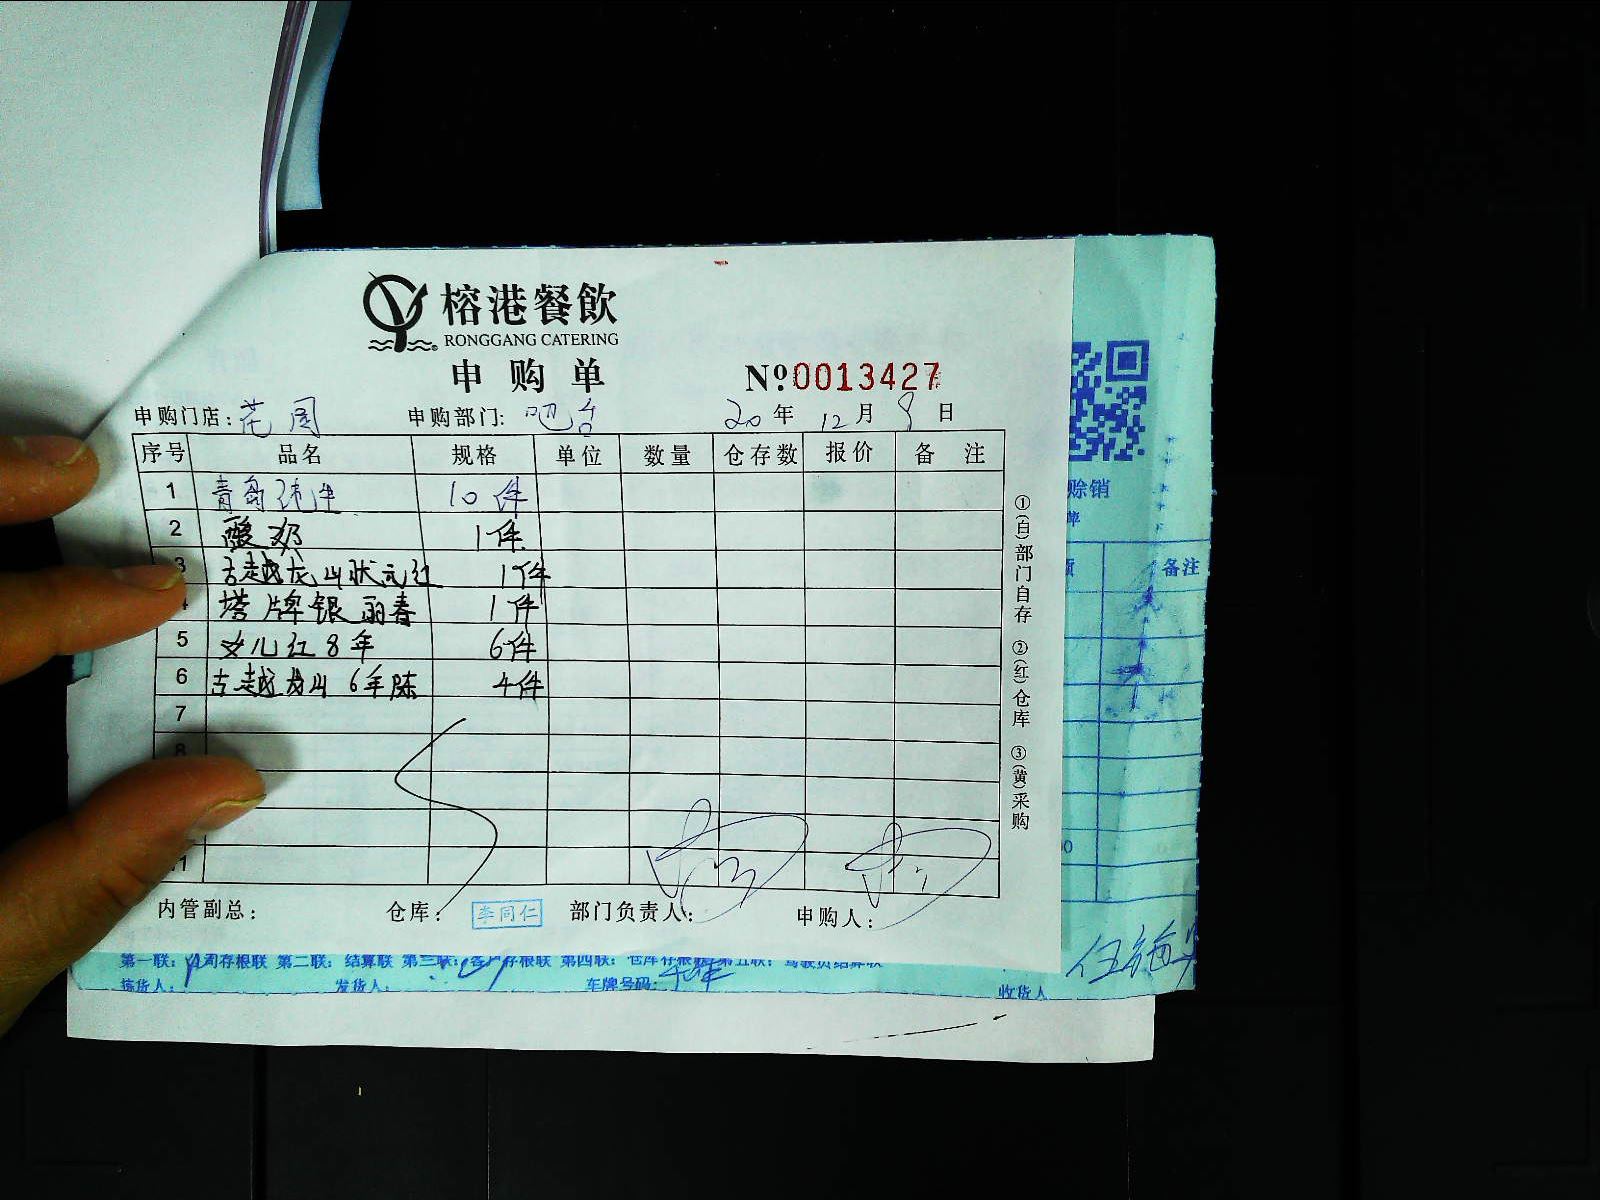 榕港餐飲
RONGGANG CATERING
申购单 №0013427
申购门店：花园 申购部门：吧台 20年12月9日
序号 品名 规格 单位 数量 仓存数 报价 备注
1 青岛纯生 10件
2 酸奶 1件
3 古越龙山状元红 1件
塔牌银丽春 1件
5 女儿红8年 6件
6 古越龙山6年陈 4件
7
8
内管副总： 仓库：李同仁 部门负责人： 申购人：
①(白)部门自存 ②(红)仓库 ③(黄)采购
赊销
备注
第二联：结算联 第三联：客户存根联 第四联：仓库存根联 第五联：驾驶员结算联
拣货人： 发货人： 车牌号码： 收货人